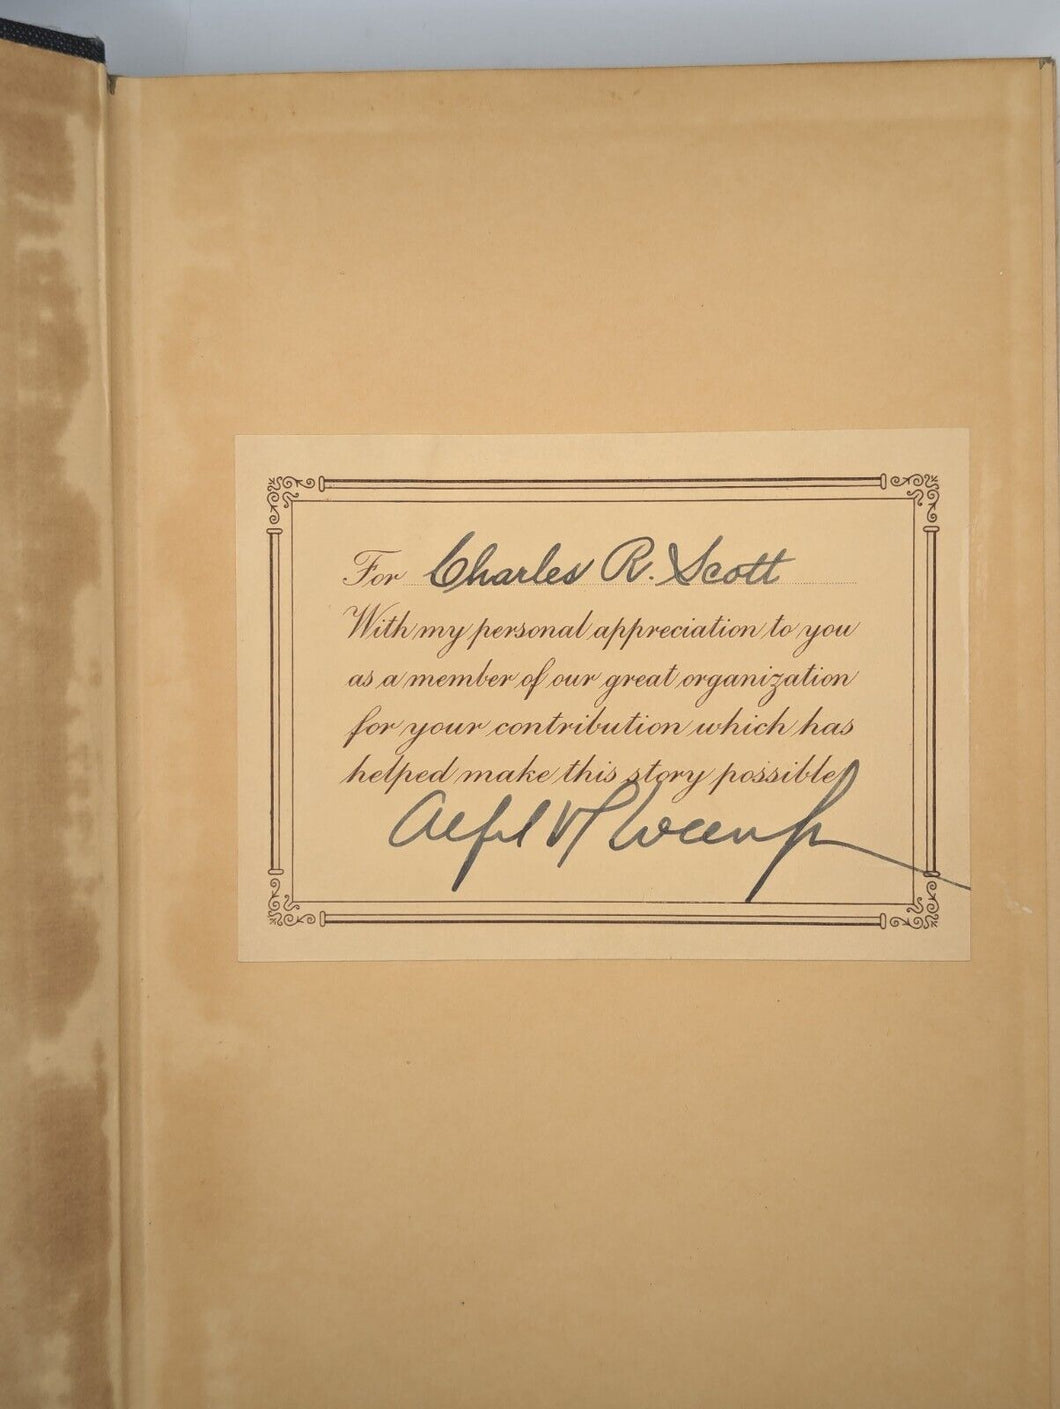 For Charles R. Scott
With my personal appreciation to you
as a member of our great organization
for your contribution which has
helped make this story possible